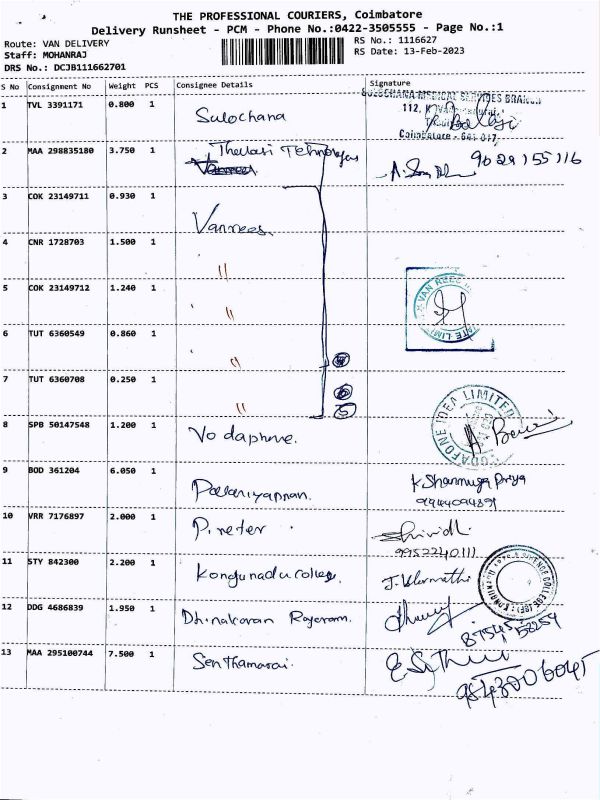 THE PROFESSIONAL COURIERS, Coimbatore
Delivery Runsheet - PCM - Phone No.:0422-3505555 - Page No.:1
Route: VAN DELIVERY
Staff: MOHANRAJ
DRS No.: DCJB111662701
RS No.: 1116627
RS Date: 13-Feb-2023
S No Consignment No Weight PCS Consignee Details Signature
1 TVL 3391171 0.800 1 Sulochana
SULOCHANA MEDICAL SERVICES BRANCH
112,
Coimbatore - 641 017.
2 MAA 298835180 3.750 1 9029155116
3 COK 23149711 0.930 1 Vanrees
4 CNR 1728703 1.500 1 "
5 COK 23149712 1.240 1 "
VAN REES
6 TUT 6360549 0.860 1 "
7 TUT 6360708 0.250 1 "
5
8 SPB 50147548 1.200 1 Vodaphone.
VODAFONE IDEA LIMITED
9 BOD 361204 6.050 1 Palaniyapnan. K Shanmuga Priya
10 VRR 7176897 2.000 1
9952240111
11 STY 842300 2.200 1 Kongunadu college.
12 DDG 4686839 1.950 1 Dhinakaran Rajaram.
13 MAA 295100744 7.500 1 Senthamarai.